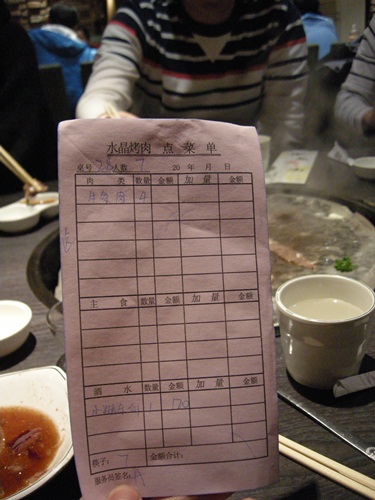 水晶烤肉 点菜单
桌号 人数 7 20 年 月 日
肉 类 数量 金额 加 量 金额
肉 4
主 食 数量 金额 加 量 金额
酒 水 数量 金额 加 量 金额
1
筷子: 7 金额合计:
服务员签名: